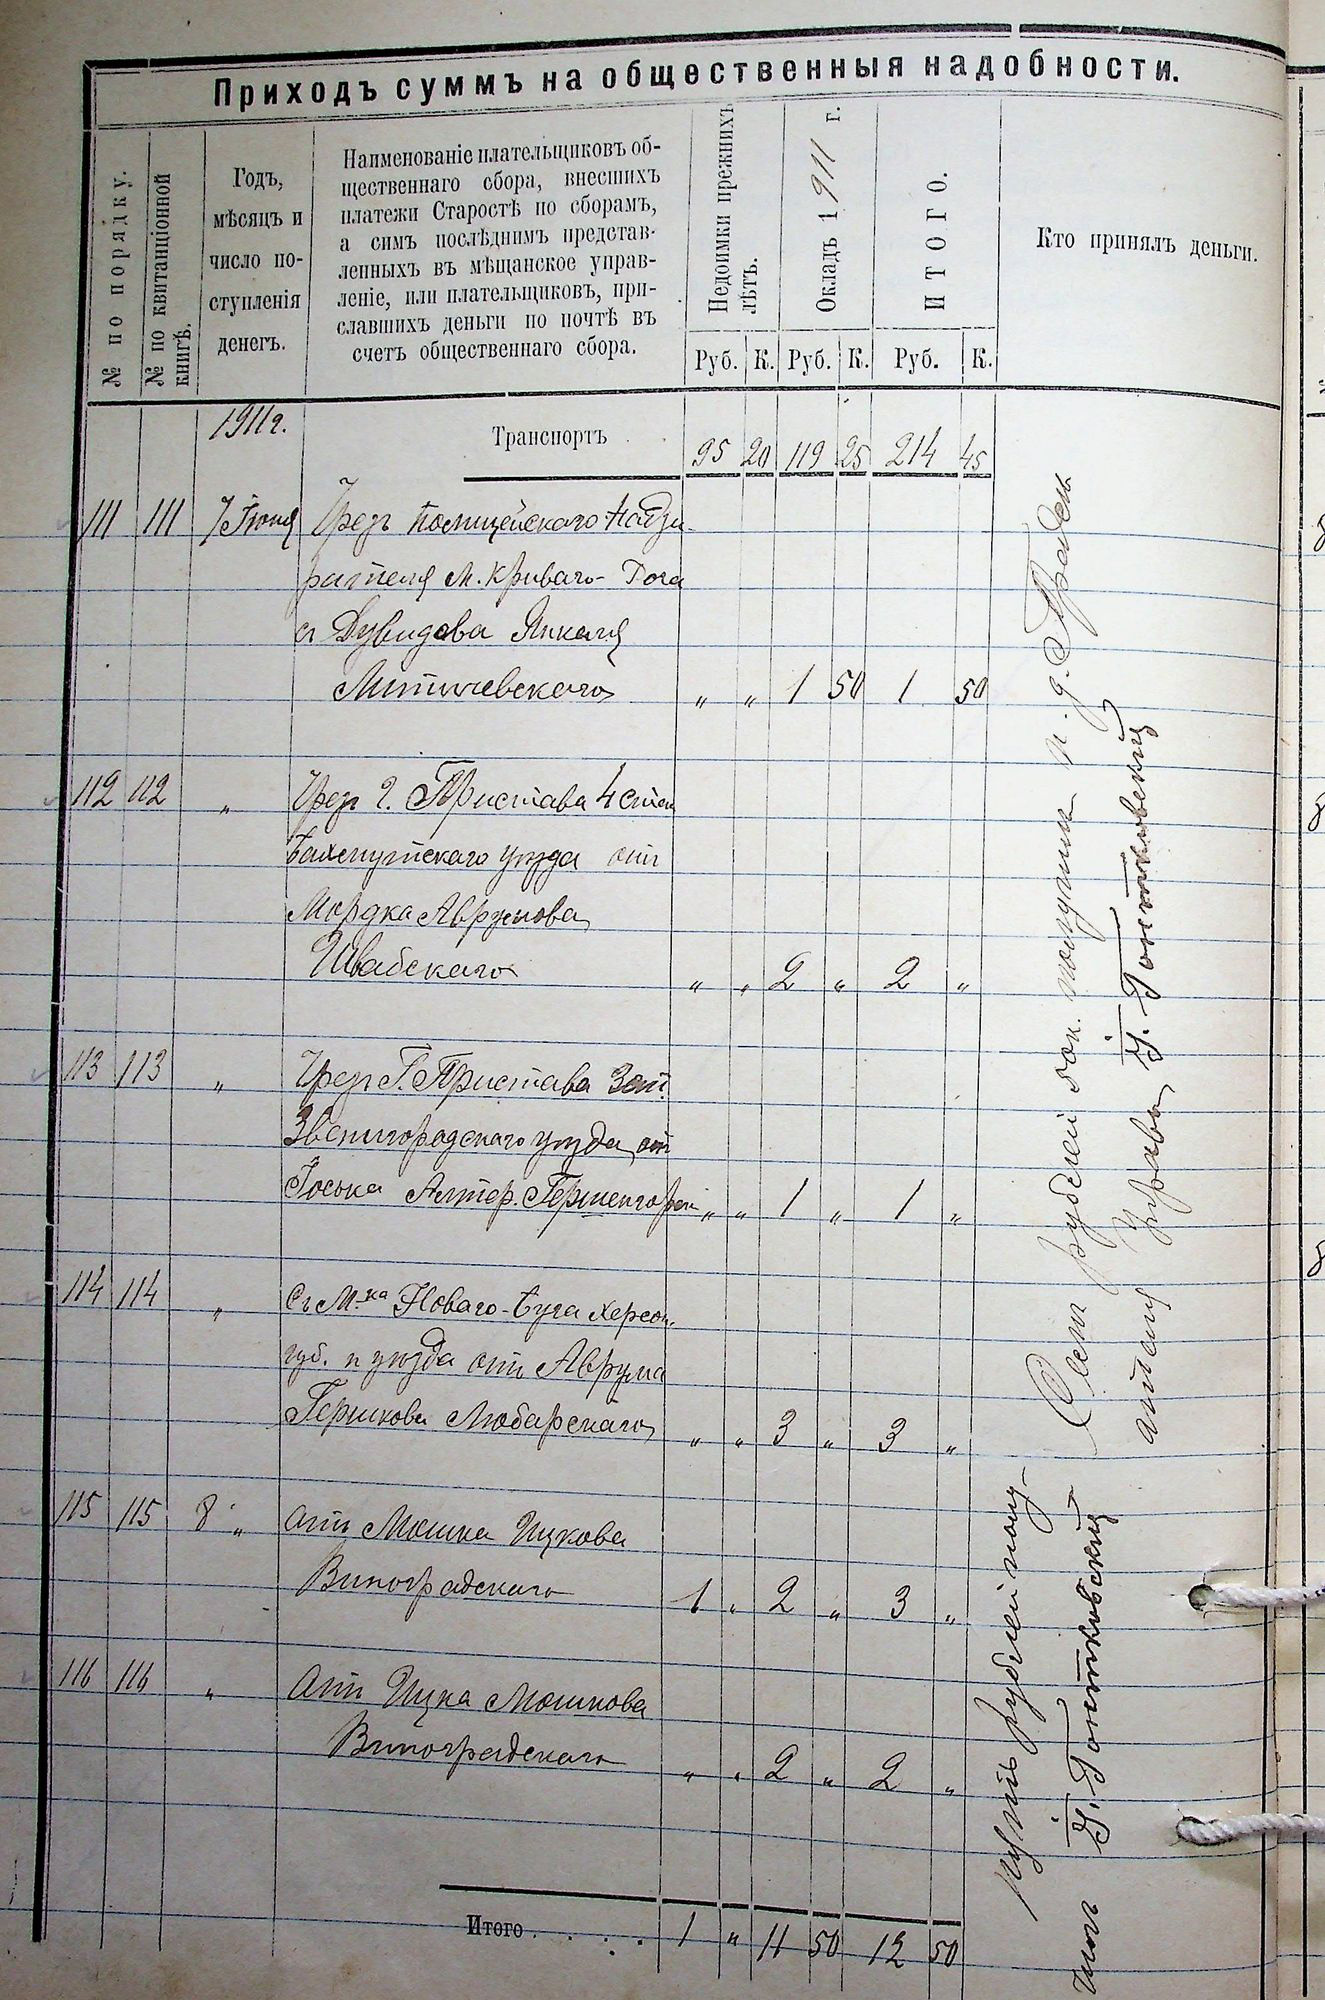 Приходъ суммъ на общественныя надобности.
№ по порядку.
№ по квитанціонной
книгѣ.
Годъ,
мѣсяцъ и
число по-
ступленія
денегъ.
Наименованіе плательщиковъ об-
щественнаго сбора, внесшихъ
платежи Старостѣ по сборамъ,
а симъ послѣднимъ представ-
ленныхъ въ мѣщанское управ-
леніе, или плательщиковъ, при-
славшихъ деньги по почтѣ въ
счетъ общественнаго сбора.
Недоимки прежнихъ
лѣтъ.
Окладъ 1911 г.
ИТОГО.
Кто принялъ деньги.
Руб. К. Руб. К. Руб. К.
1911 г. Транспортъ 95 20 119 25 214 45
111 111 7 Іюня Чрезъ Полицейскаго Надзи-
рателя м. Криваго-Рога
Дувидова Янкеля
„ „ 1 50 1 50
112 112 „ Чрезъ г. Пристава 4 стан
Бахмутскаго уѣзда отъ
Мордка Аврумова
Швабскаго „ „ 2 „ 2 „
113 113 „ Чрезъ Г. Пристава 3 ст.
Звенигородскаго уѣзда отъ
Іоська Алтер. „ „ 1 „ 1 „
114 114 „ Съ М-ка Новаго-Буга Херсон.
губ. и уѣзда отъ Аврума
Гершкова Любарскаго „ „ 3 „ 3 „
115 115 8 „ отъ Мошка Ицкова
Виноградскаго 1 „ 2 „ 3 „
116 116 „ отъ Ицка Мошкова
Виноградскаго „ „ 2 „ 2 „
Итого . . . . 1 „ 11 50 12 50
Семь рублей 50 к. получилъ и. д.
Управы
Пять рублей полу-
чилъ